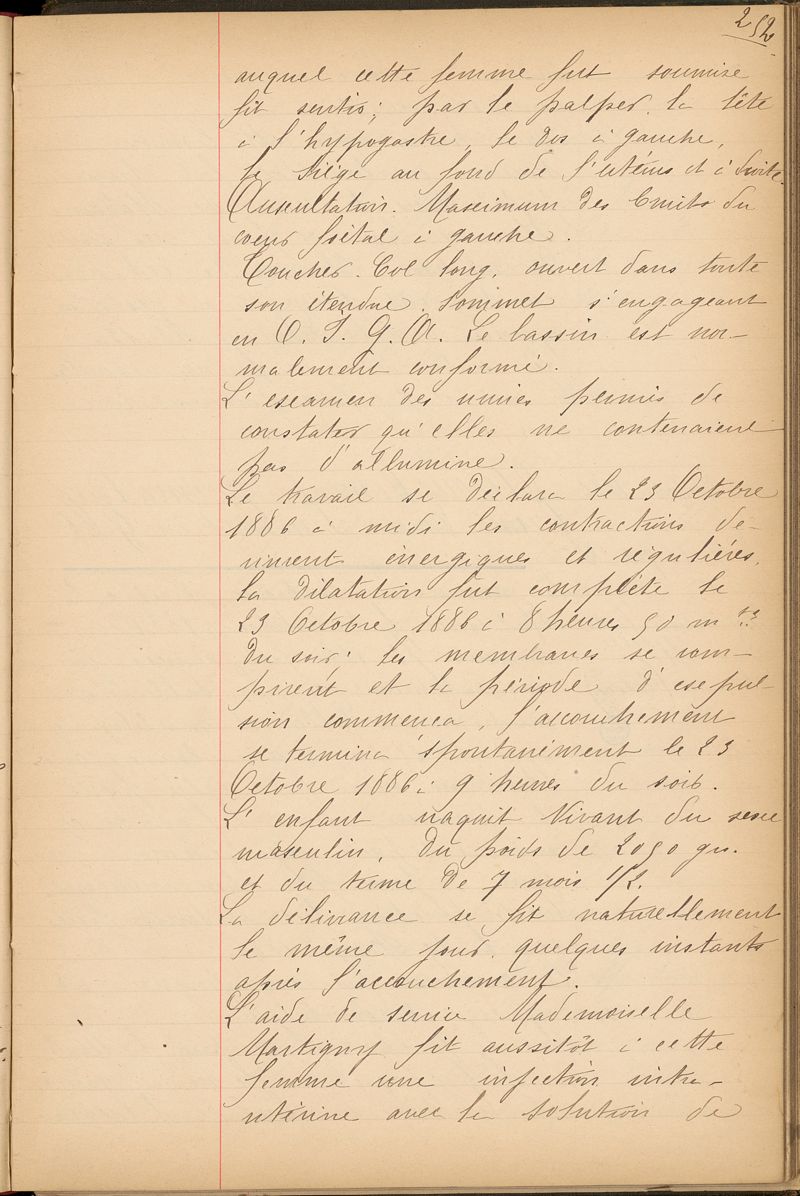 252
auquel cette femme fut soumise
fit sentir; par le palper, la tête
à l'hypogastre, le dos à gauche,
le siège au fond de l'utérus et à droite.
Auscultation. Maximum des bruits du
coeur foetal à gauche.
Toucher. Col long, ouvert dans toute
son étendue. Sommet s'engageant
en O. I. G. A. Le bassin est nor-
malement conformé.
L'examen des urines permis de
constater qu'elles ne contenaient
pas d'albumine.
Le travail se déclara le 23 Octobre
1886 à midi les contractions de-
vinrent énergiques et régulières,
la dilatation fut complète le
23 Octobre 1886 à 8 heures 50 m tes
du soir; les membranes se rom-
pirent et la période d'expul-
sion commença, l'accouchement
se termina spontanément le 23
Octobre 1886 à 9 heures du soir.
L'enfant naquit vivant du sexe
masculin, du poids de 2050 gr.
et du terme de 7 mois 1/2.
La délivrance se fit naturellement
le même jour, quelques instants
après l'accouchement.
L'aide de service Mademoiselle
Martigny fit aussitôt à cette
femme une injection intra-
utérine avec la solution de